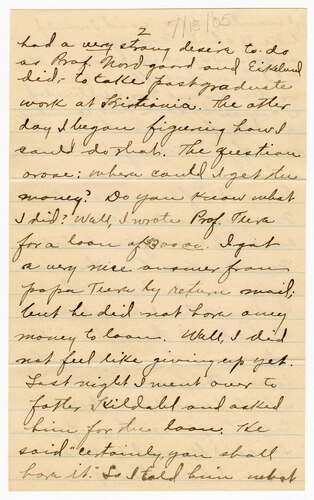 2
7/13/05
had a very strong desire to do
as Prof. Nordgaard and Eikeland
did,- to take postgraduate
work at Kristiania. The other
day I began figuering how I
could do that. The question
arose: where could I get the
money? Do you know what
I did? Well, I wrote Prof. Ther
for a loan of 300.00. I got
a very nice answer from
papa by return mail;
but he did not have any
money to loan. Well, I did
not feel like giving up yet.
Last night I went over to
father Kildahl and asked
him for the loan. He
said "certainly, you shall
have it." So I told him what